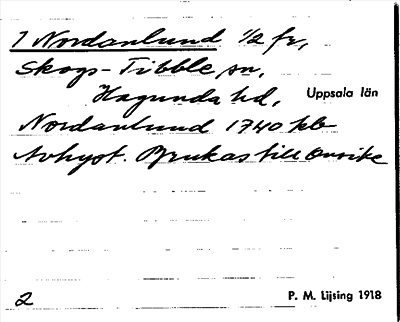 1 Nordanlund 1/2 fr,
Skogs-Tibble sn,
Hagunda hd, Uppsala län
Nordanlund 1740 kb
Avhyst. Brukas till Onsike
2 P. M. Lijsing 1918